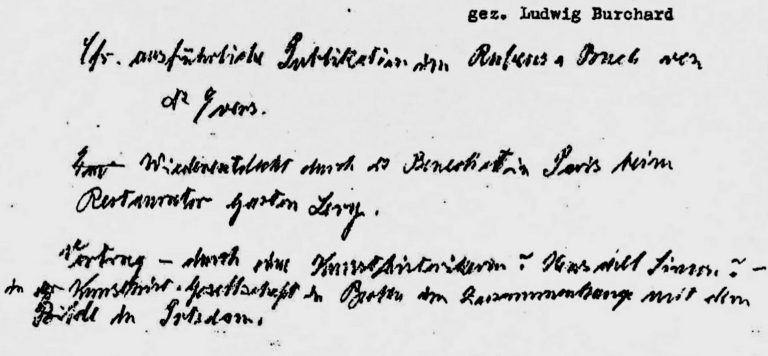 gez. Ludwig Burchard
Cfr. ausführliche Publikation im Rubens-Buch von
Dr Evers.
Wiederentdeckt durch Dr Benedict in Paris beim
Restaurator Gaston Levy.
Vortrag – durch eine Kunsthistorikerin ? ? –
in der Kunsthist. Gesellschaft in Berlin im Zusammenhange mit dem
Bilde in Potsdam.